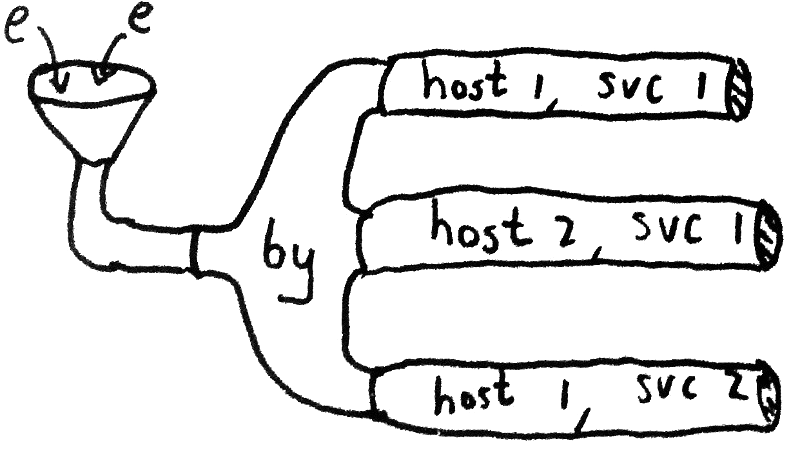 e e
host 1, svc 1
by
host 2, svc 1
host 1, svc 2